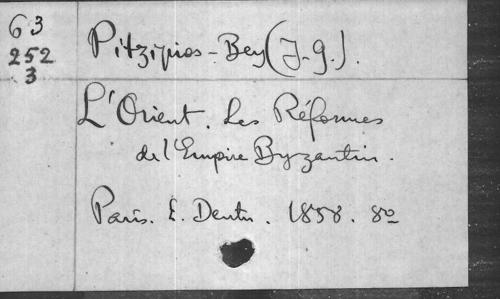 63
252
3
Pitzipios-Bey (J.-G.).
L'Orient. Les Réformes
de l'Empire Byzantin.
Paris. E. Dentu. 1858. 8o